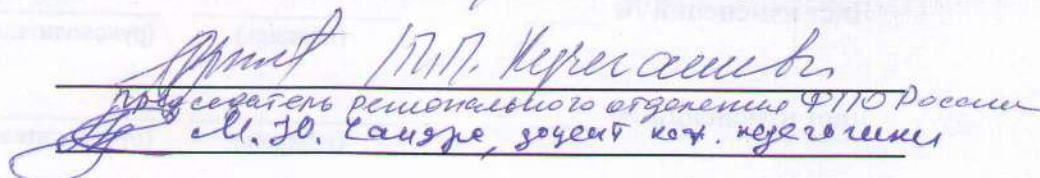 П.П. Кучегашева
председатель регионального отделения ФПО России
М.Ю. Чандра, доцент каф. педагогики